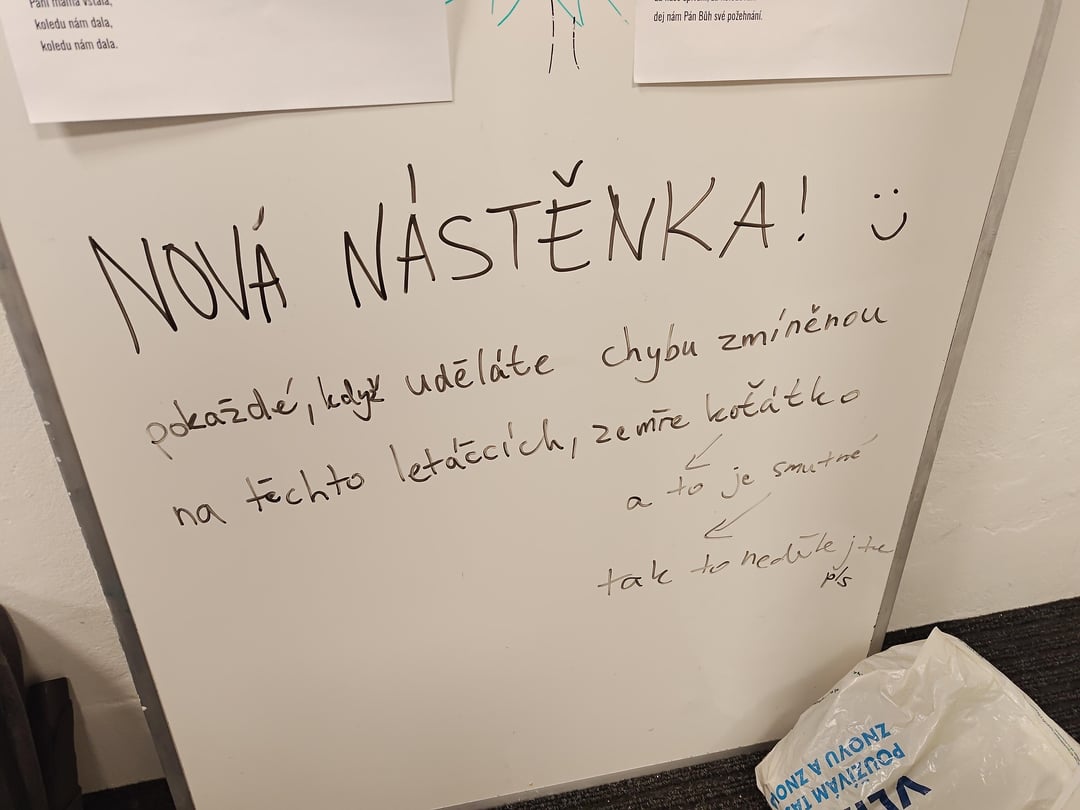 Pani máma vstala,
koledu nám dala,
koledu nám dala.
dej nám Pán Bůh své požehnání.
NOVÁ NÁSTĚNKA! :)
pokaždé, když uděláte chybu zmíněnou
na těchto letáčcích, zemře koťátko
a to je smutné
tak to nedělejte
p/s
POUŽÍVÁM TA
ZNOVU A ZNOV